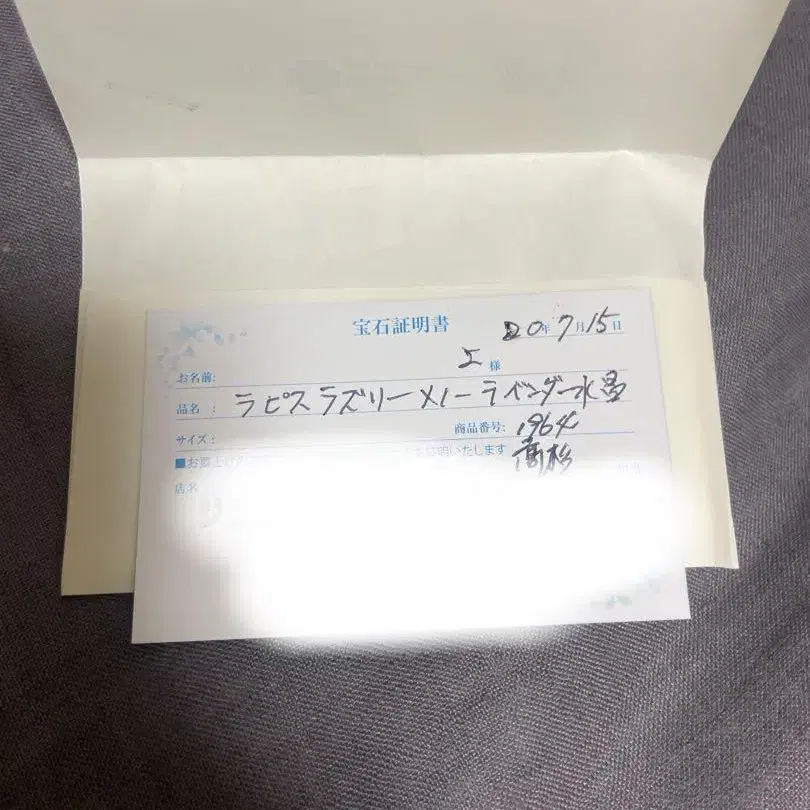 宝石証明書
20年7月15日
お名前: 様
品名 : ラピスラズリーメノーラベンダー水晶
サイズ:
商品番号: 1964
■お買上げ 証明いたします
店名 高杉